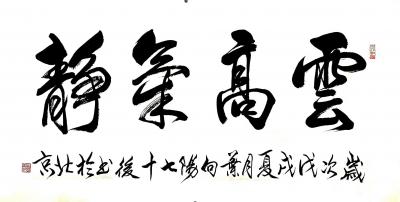 雲高氣靜
歲次戊戌夏月葉向陽七十後书於北京